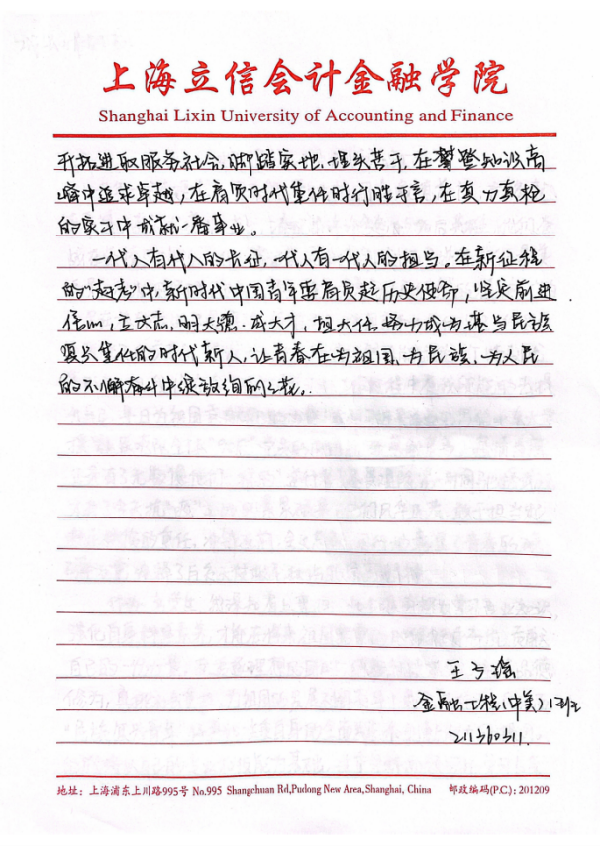 上海立信会计金融学院
Shanghai Lixin University of Accounting and Finance
开拓进取服务社会,脚踏实地,埋头苦干,在攀登知识高
峰中追求卓越,在肩负时代重任时行胜于言,在真刀真枪
的实干中成就一番事业。
一代人有一代人的长征,一代人有一代人的担当。在新征程
的"赶考"中,新时代中国青年要肩负起历史使命,坚定前进
信心,立大志,明大德,成大才,担大任,努力成为堪当民族
复兴重任的时代新人,让青春在为祖国、为民族、为人民
的不懈奋斗中绽放绚丽之花。
金融工程(中美)1班
211360311
地址:上海浦东上川路995号 No.995 Shangchuan Rd,Pudong New Area,Shanghai, China 邮政编码(P.C.): 201209